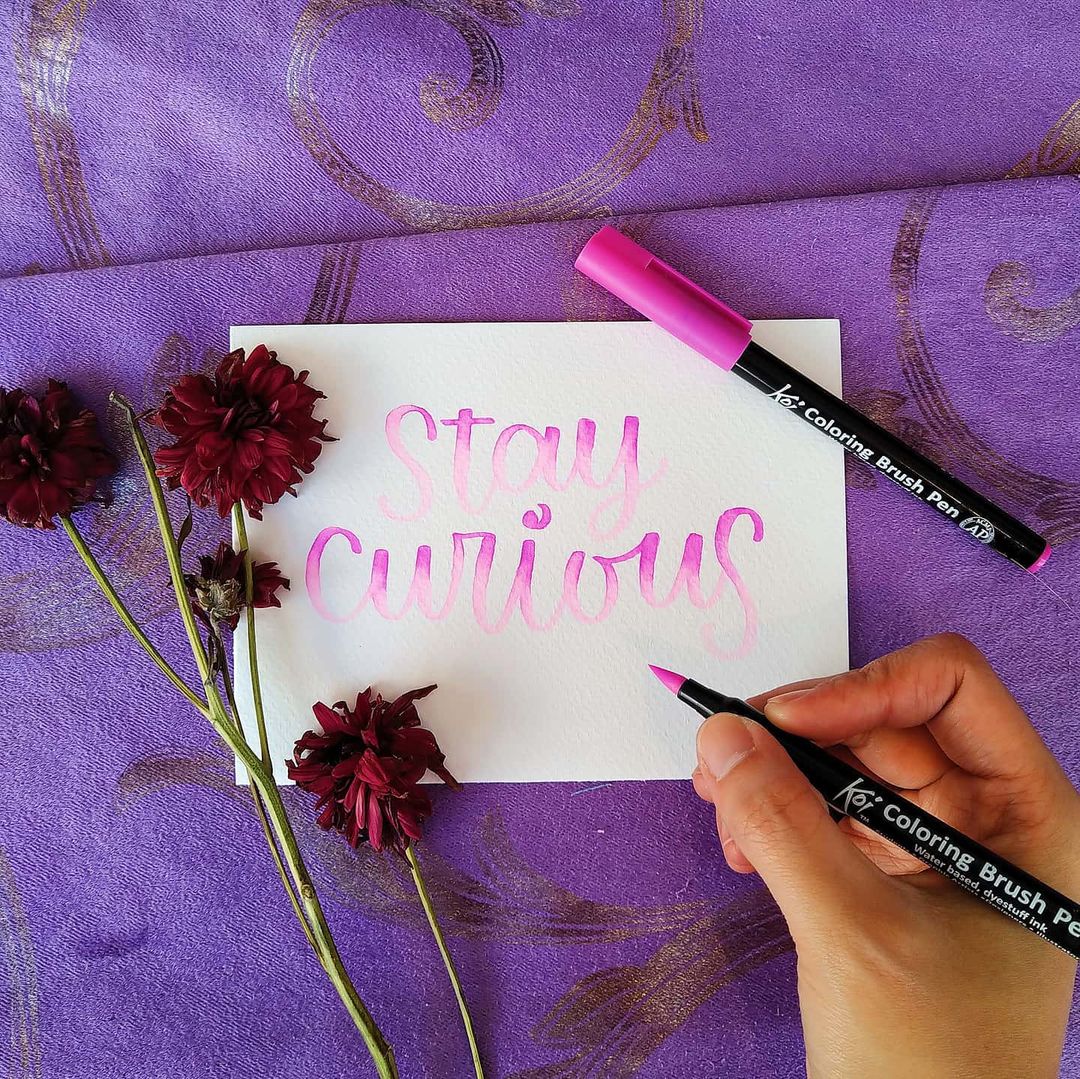 Stay
curious
Koi Coloring Brush Pen
AP
Koi™ Coloring Brush Pe
Water based, dyestuff ink